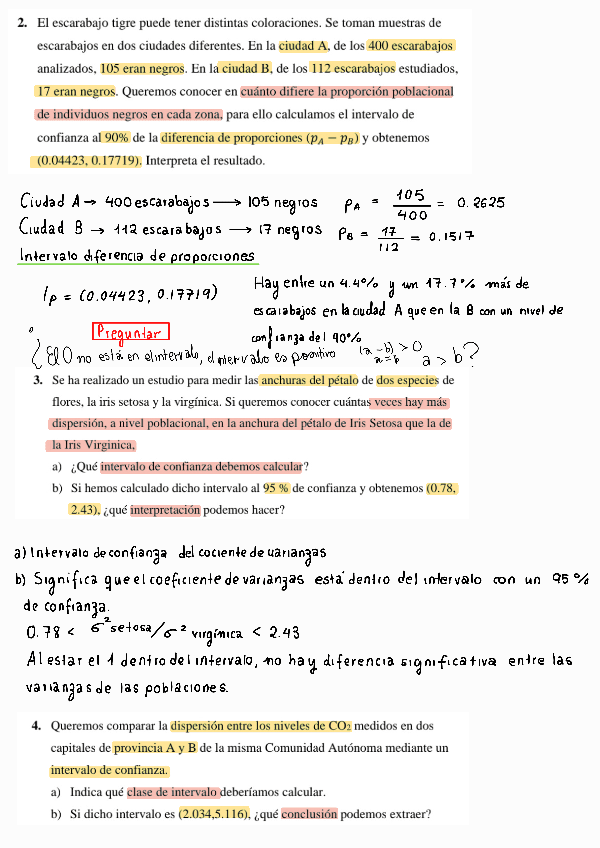 2. El escarabajo tigre puede tener distintas coloraciones. Se toman muestras de
escarabajos en dos ciudades diferentes. En la ciudad A, de los 400 escarabajos
analizados, 105 eran negros. En la ciudad B, de los 112 escarabajos estudiados,
17 eran negros. Queremos conocer en cuánto difiere la proporción poblacional
de individuos negros en cada zona, para ello calculamos el intervalo de
confianza al 90% de la diferencia de proporciones (pA − pB) y obtenemos
(0.04423, 0.17719). Interpreta el resultado.
Ciudad A → 400 escarabajos → 105 negros PA = 105/400 = 0.2625
Ciudad B → 112 escarabajos → 17 negros PB = 17/112 = 0.1517
Intervalo diferencia de proporciones
Ip = (0.04423, 0.17719)
Hay entre un 4.4% y un 17.7% más de
escarabajos en la ciudad A que en la B con un nivel de
confianza del 90%
Preguntar
¿El 0 no está en el intervalo, el intervalo es positivo (a - b) > 0 a = b a > b?
3. Se ha realizado un estudio para medir las anchuras del pétalo de dos especies de
flores, la iris setosa y la virgínica. Si queremos conocer cuántas veces hay más
dispersión, a nivel poblacional, en la anchura del pétalo de Iris Setosa que la de
la Iris Virginica,
a) ¿Qué intervalo de confianza debemos calcular?
b) Si hemos calculado dicho intervalo al 95 % de confianza y obtenemos (0.78,
2.43), ¿qué interpretación podemos hacer?
a) Intervalo de confianza del cociente de varianzas
b) Significa que el coeficiente de varianzas está dentro del intervalo con un 95%
de confianza.
0.78 < σ² setosa/σ² virgínica < 2.43
Al estar el 1 dentro del intervalo, no hay diferencia significativa entre las
varianzas de las poblaciones.
4. Queremos comparar la dispersión entre los niveles de CO₂ medidos en dos
capitales de provincia A y B de la misma Comunidad Autónoma mediante un
intervalo de confianza.
a) Indica qué clase de intervalo deberíamos calcular.
b) Si dicho intervalo es (2.034,5.116), ¿qué conclusión podemos extraer?